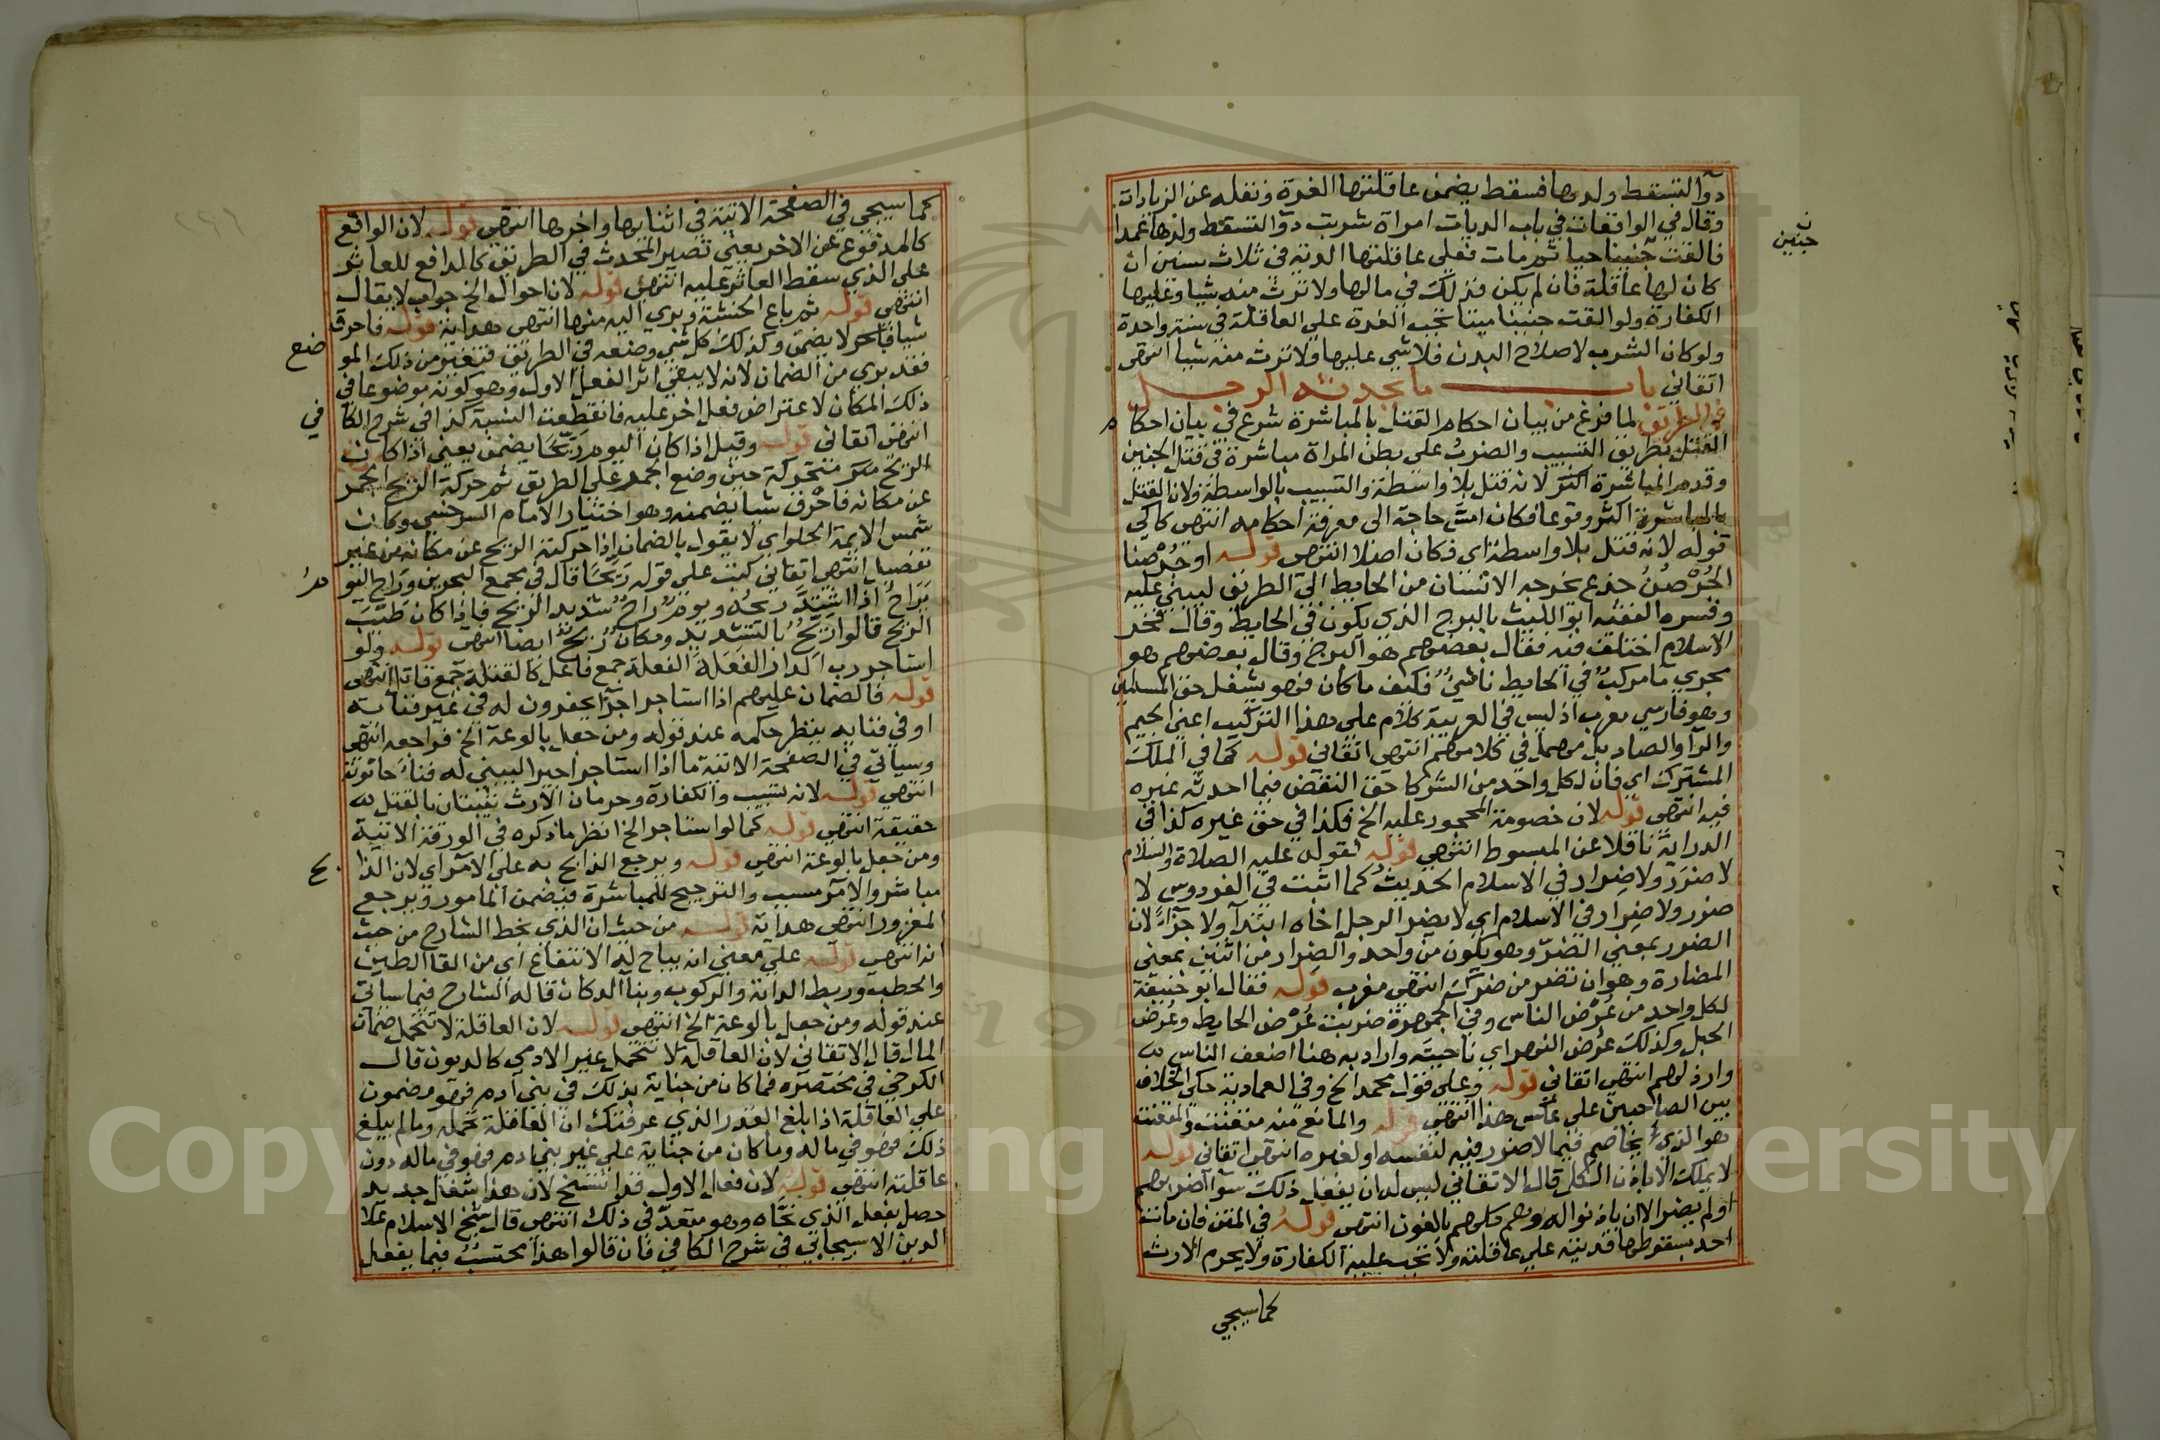 دوآ لتسقط ولدها فسقط يضمن عاقلتها الغرة ونقله عن الزيادات
وقال في الواقعات في باب الديات امراة شربت دوآ لتسقط ولدها عمدا
فالقت جنينا حيا ثم مات فعلى عاقلتها الدية في ثلاث سنين ان
كان لها عاقلة فان لم يكن فذلك في مالها ولا ترث منه شيا وعليها
الكفارة ولو القت جنينا ميتا تجب الغرة علي العاقلة في سنة واحدة
ولو كان الشرب لاصلاح البدن فلا شي عليها ولا ترث منه شيا انتهى
اتقاني باب ما يحدثه الرجل
في الطريق لما فرغ من بيان احكام القتل بالمباشرة شرع في بيان احكا م
القتل بطريق التسبيب والضرب على بطن المراة مباشرة في قتل الجنين
وقدم المباشرة اكثر لانه قتل بلا واسطة والتسبيب بالواسطة ولان القتل
بالمباشرة اكثر وقوعا فكان امس حاجة الى معرفة احكامه انتهى كاكي
قوله لانه قتل بلا واسطة اي فكان اصلا انتهى قوله او جرصنا
الجرصن جذع يخرجه الانسان من الحايط الى الطريق ليبني عليه
وفسره الفقيه ابو الليث بالبرج الذي يكون في الحايط وقال فخر
الاسلام اختلف فيه فقال بعضهم هو البرج وقال بعضهم هو
مجري ما مركب في الحايط ناشي فكيف ما كان فهو يشغل حق المسلمين
وهو فارسي معرب اذ ليس في العربية كلام على هذا التركيب اعني الجيم
والرآ والصاد بل مهمل في كلامهم انتهى اتقاني قوله كما في الملك
المشترك اي فان لكل واحد من الشركا حق النقض فيما احدثه غيره
فيه انتهى قوله لان خصومة المحجور عليه الخ فكذا في حق غيره كذا في
الدراية ناقلا عن المبسوط انتهى قوله لقوله عليه الصلاة والسلام
لا ضرر ولا ضرار في الاسلام الحديث كما اثبت في الفردوس لا
ضرر ولا ضرار في الاسلام اي لا يضر الرجل اخاه ابتدآ ولا جزآء لان
الضرر بمعنى الضر وهو يكون من واحد والضرار من اثنين بمعنى
المضارة وهو ان تضر من ضرك انتهى مغرب قوله فقال ابو حنيفة
لكل واحد من عرض الناس وفي الجمهرة ضربت عرض الحايط وعرض
الجبل وكذلك عرض النهر اي ناحيته واراد به هنا اضعف الناس
وارذلهم انتهى اتقاني قوله وعلي قول محمد الخ وفي العمادية حكي الخلاف
بين الصاحبين علي عكس هذا انتهى قوله والمانع منه متعنت والمتعنت
هو الذي يخاصم فيما لا ضرر فيه لنفسه او لغيره انتهى اتقاني قوله
لا يملك الا باذن الكل قال الاتقاني ليس له ان يفعل ذلك سوآ اضر بهم
او لم يضر الا ان ياذنوا له وهم كلهم بالغون انتهى قوله في المتن فان مات
احد بسقوطها فديته علي عاقلته ولا تجب عليه الكفارة ولا يحرم الارث
كما سيجي
جنين
كما سيجي في الصفحة الاتية في اثنايها واخرها انتهى قوله لان الواقع
كالمدفوع عن الاخر يعني تصير المحدث في الطريق كالدافع للعاثر
على الذي سقط العاثر عليه انتهى قوله لان احوال الخ جواب لا يقال
انتهى قوله ثم باع الخشبة وبري اليه منها انتهى هداية قوله فاحرق
شيا قبل لا يضمن وكذلك كل شي وضعه في الطريق فتغير من ذلك المو ضع
فقد بري من الضمان لانه لا يبقي اثر الفعل الاول وهو كونه موضوعا في
ذلك المكان لاعتراض فعل اخر عليه فانقطعت النسبة كذا في شرح الكا في
انتهى اتقاني قوله وقيل اذا كان اليوم ريحا يضمن يعني اذا كان
الريح متحركة حين وضع الجمر علي الطريق ثم حركت الريح الجمر
عن مكانه فاحرق شيا يضمنه وهو اختيار الامام السرخسي وكان
شمس الايمة الحلواي لا يقول بالضمان اذا حركته الريح عن مكانه من غير
تفصيل انتهى اتقاني كتب على قوله ريحا قال في مجمع البحرين وراح اليو م
يراح اذا اشتد ريحه ويوم راح شديد الريح فاذا كان طيب
الريح قالوا ريح بالتشديد ومكان ريح ايضا انتهى قوله ولو
استاجر رب الدار الفعلة الفعلة جمع فاعل كالقتلة جمع قاتل انتهى
قوله فالضمان عليهم اذا استاجر اجرآ يحفرون له في غير فنايه
او في فنايه ينظر حكمه عند قوله ومن جعل بالوعة الخ فراجعه انتهى
وسياتي في الصفحة الاتية ما اذا استاجر اجيرا ليبني له فنآء حانوته
انتهى قوله لانه تسبيب والكفارة وحرمان الارث يثبتان بالقتل
حقيقة انتهى قوله كما لو استاجر الخ انظر ما ذكره في الورقة الاتية
ومن جعل بالوعة انتهى قوله ويرجع الذابح به علي الامر اي لان الذا بح
مباشر والامر مسبب والترجيح للمباشرة فيضمن المامور ويرجع
المغرور انتهى هداية قوله من حيث ان الذي بخط الشارح من حيث
انه انتهى قوله علي معني انه يباح له الانتفاع اي من القا الطين
والحطب وربط الدابة والركوب وبنآ الدكان قاله الشارح فيما سياتي
عند قوله ومن جعل بالوعة الخ انتهى قوله لان العاقلة لا تتحمل ضمان
المال قال الاتقاني لان العاقلة لا تتحمل غير الادمي كالديون قال
الكرخي في مختصره فما كان من جناية بذلك في بني آدم فهو مضمون
علي العاقلة اذا بلغ القدر الذي عرفتك ان العاقلة تحمله وما لم يبلغ
ذلك فهو في ماله وما كان من جناية على غير بني ادم فهو في ماله دون
عاقلته انتهى قوله لان فعل الاول قد انتسخ لان هذا شغل جديد
حصل بفعل الذي نحاه وهو متعد في ذلك انتهى قال شيخ الاسلام علا
الدين الاسبيجابي في شرح الكافي فان قالوا هذا محتسب فيما يفعل
Copy King Saud University